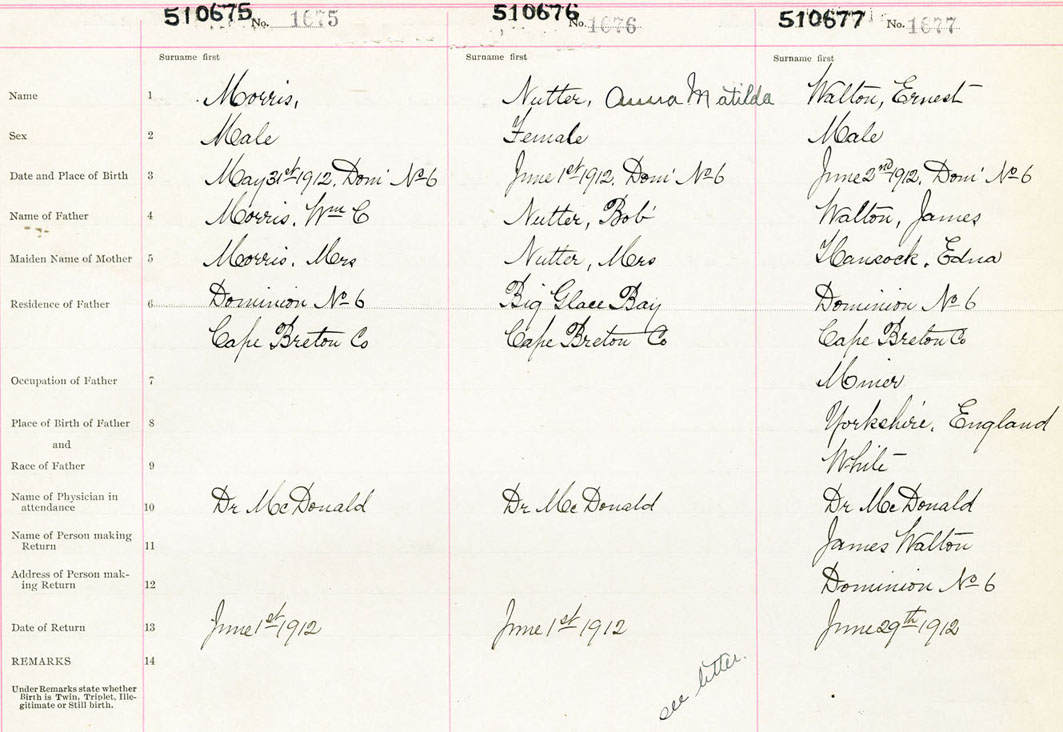 510675 No. 1675 510676 No. 1676 510677 No. 1677
Surname first Surname first Surname first
Name 1 Morris, Nutter, Anna Matilda Walton, Ernest
Sex 2 Male Female Male
Date and Place of Birth 3 May 31st 1912. Dom' No 6 June 1st 1912. Dom' No 6 June 2nd 1912. Dom' No 6
Name of Father 4 Morris, Wm C Nutter, Bob' Walton, James
Maiden Name of Mother 5 Morris. Mrs Nutter, Mrs Hancock, Edna
Residence of Father 6 Dominion No 6 Big Glace Bay Dominion No 6
Cape Breton Co Cape Breton Co Cape Breton Co
Occupation of Father 7 Miner
Place of Birth of Father 8 Yorkshire, England
and
Race of Father 9 White
Name of Physician in
attendance 10 Dr McDonald Dr McDonald Dr McDonald
Name of Person making
Return 11 James Walton
Address of Person mak-
ing Return 12 Dominion No 6
Date of Return 13 June 1st 1912 June 1st 1912 June 29th 1912
REMARKS 14
see letter.
Under Remarks state whether
Birth is Twin, Triplet, Ille-
gitimate or Still birth.